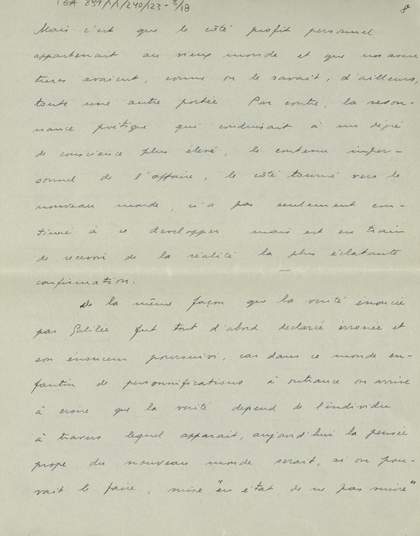 TGA 891/1/1/240/23-3/18
8
Mais c'est que le côté profit personnel
appartenait au vieux monde et que nos aven
tures avaient, comme on le savait, d'ailleurs,
toute une autre portée. Par contre, la réson-
nance poétique qui conduisait à un degré
de conscience plus élevé, le contenu imper-
sonnel de l'affaire, le côté tourné vers le
nouveau monde, n'a pas seulement con-
tinué à se développer mais est en train
de recevoir de la réalité la plus éclatante
confirmation.
De la même façon que la vérité énoncée
par Galilée fut tout d'abord déclarée erronée et
son énonceur poursuivi, car dans ce monde en-
fantin de personnifications à outrance on arrive
à croire que la vérité dépend de l'individu
à travers lequel apparaît, aujourd'hui la pensée
propre du nouveau monde serait, si on pou-
vait le faire, mise "en état de ne pas nuire"